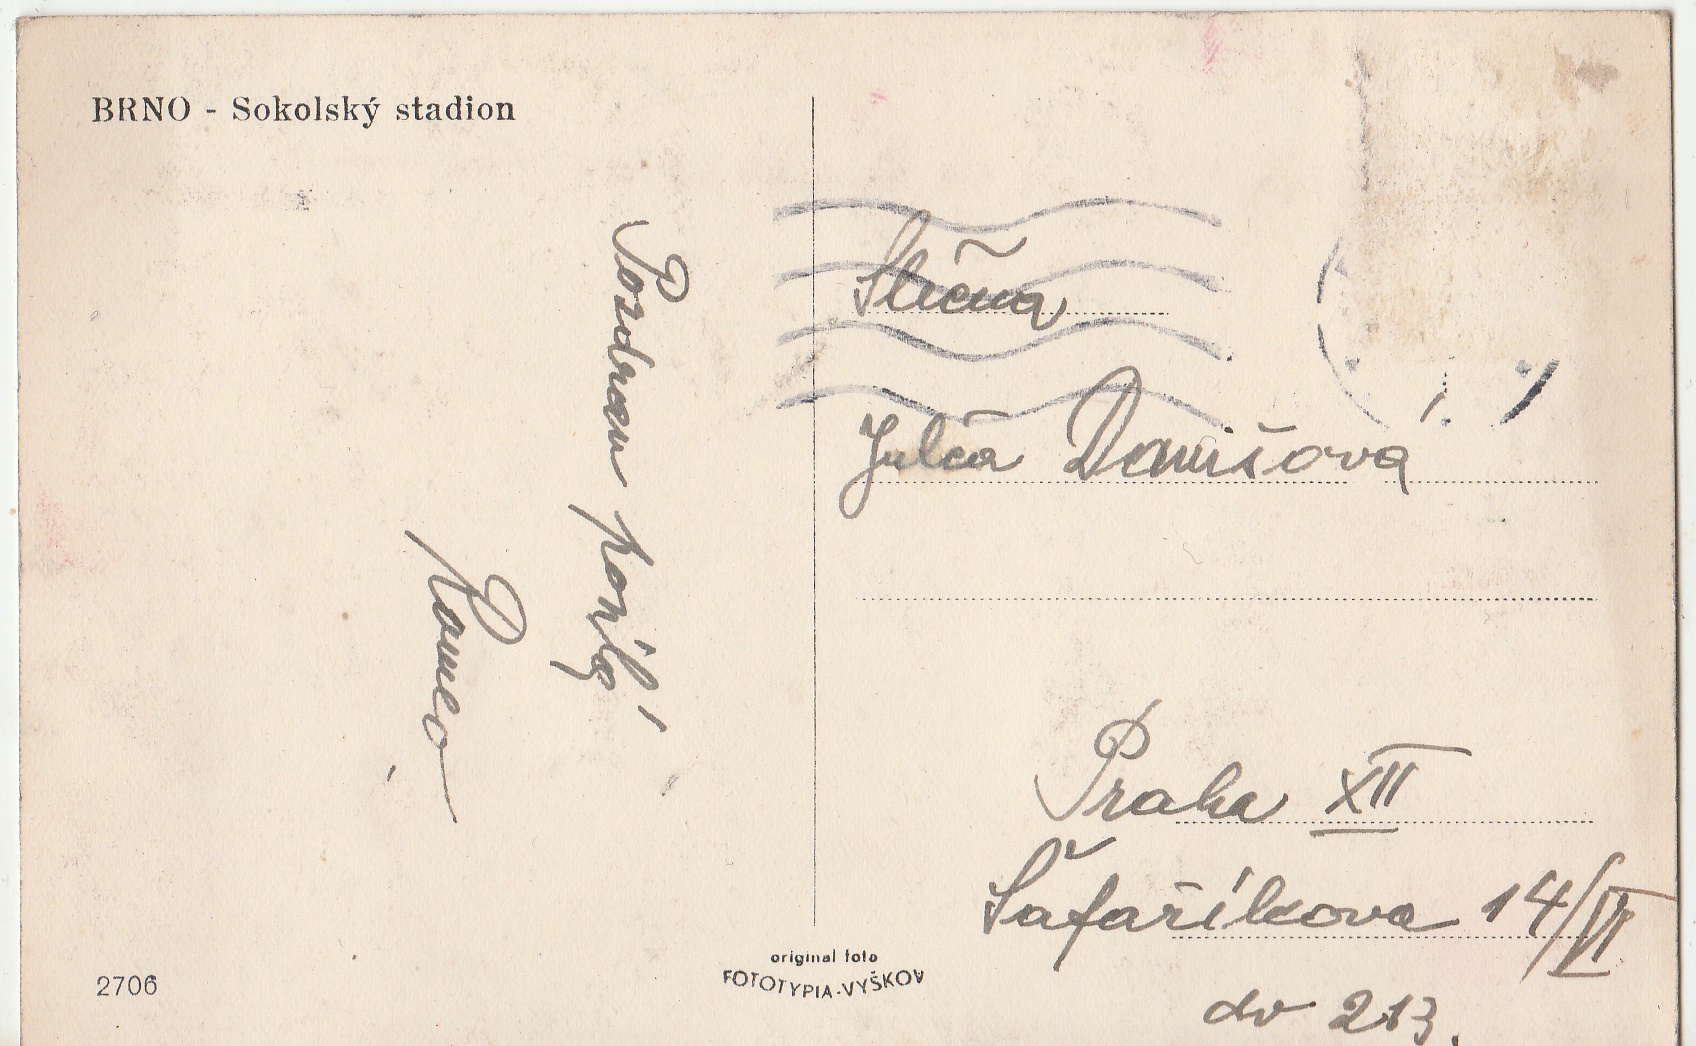 BRNO - Sokolský stadion
Pozdrav posílá
Romeo
Slečna
Julča Danišová
Praha XII
Šafaříkova 14/VI
dv 213.
2706
original foto
FOTOTYPIA-VYŠKOV